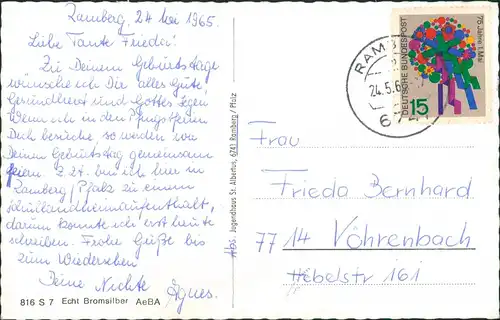 Ramberg, 24 Mai 1965.
Liebe Tante Frieda!
Zu Deinem Geburtstage
wünsche ich Dir alles Gute,
Gesundheit und Gottes Segen
Wenn ich in den Pfingstferien
Dich besuche so werden wir
Deinen Geburtstag gemeinsam
feiern. Z. Zt. bin ich hier in
Ramberg/Pfalz zu einem
Schullandheimaufenthalt,
darum konnte ich erst heute
schreiben. Frohe Grüße bis
zum Wiedersehen
Deine Nichte
Agnes.
816 S 7 Echt Bromsilber AeBA
Abs. Jugendhaus St. Albertus, 6741 Ramberg / Pfalz
75 Jahre 1. Mai
DEUTSCHE BUNDESPOST
15
24.5.6
Frau
Frieda Bernhard
7714 Vöhrenbach
Hebelstr 161